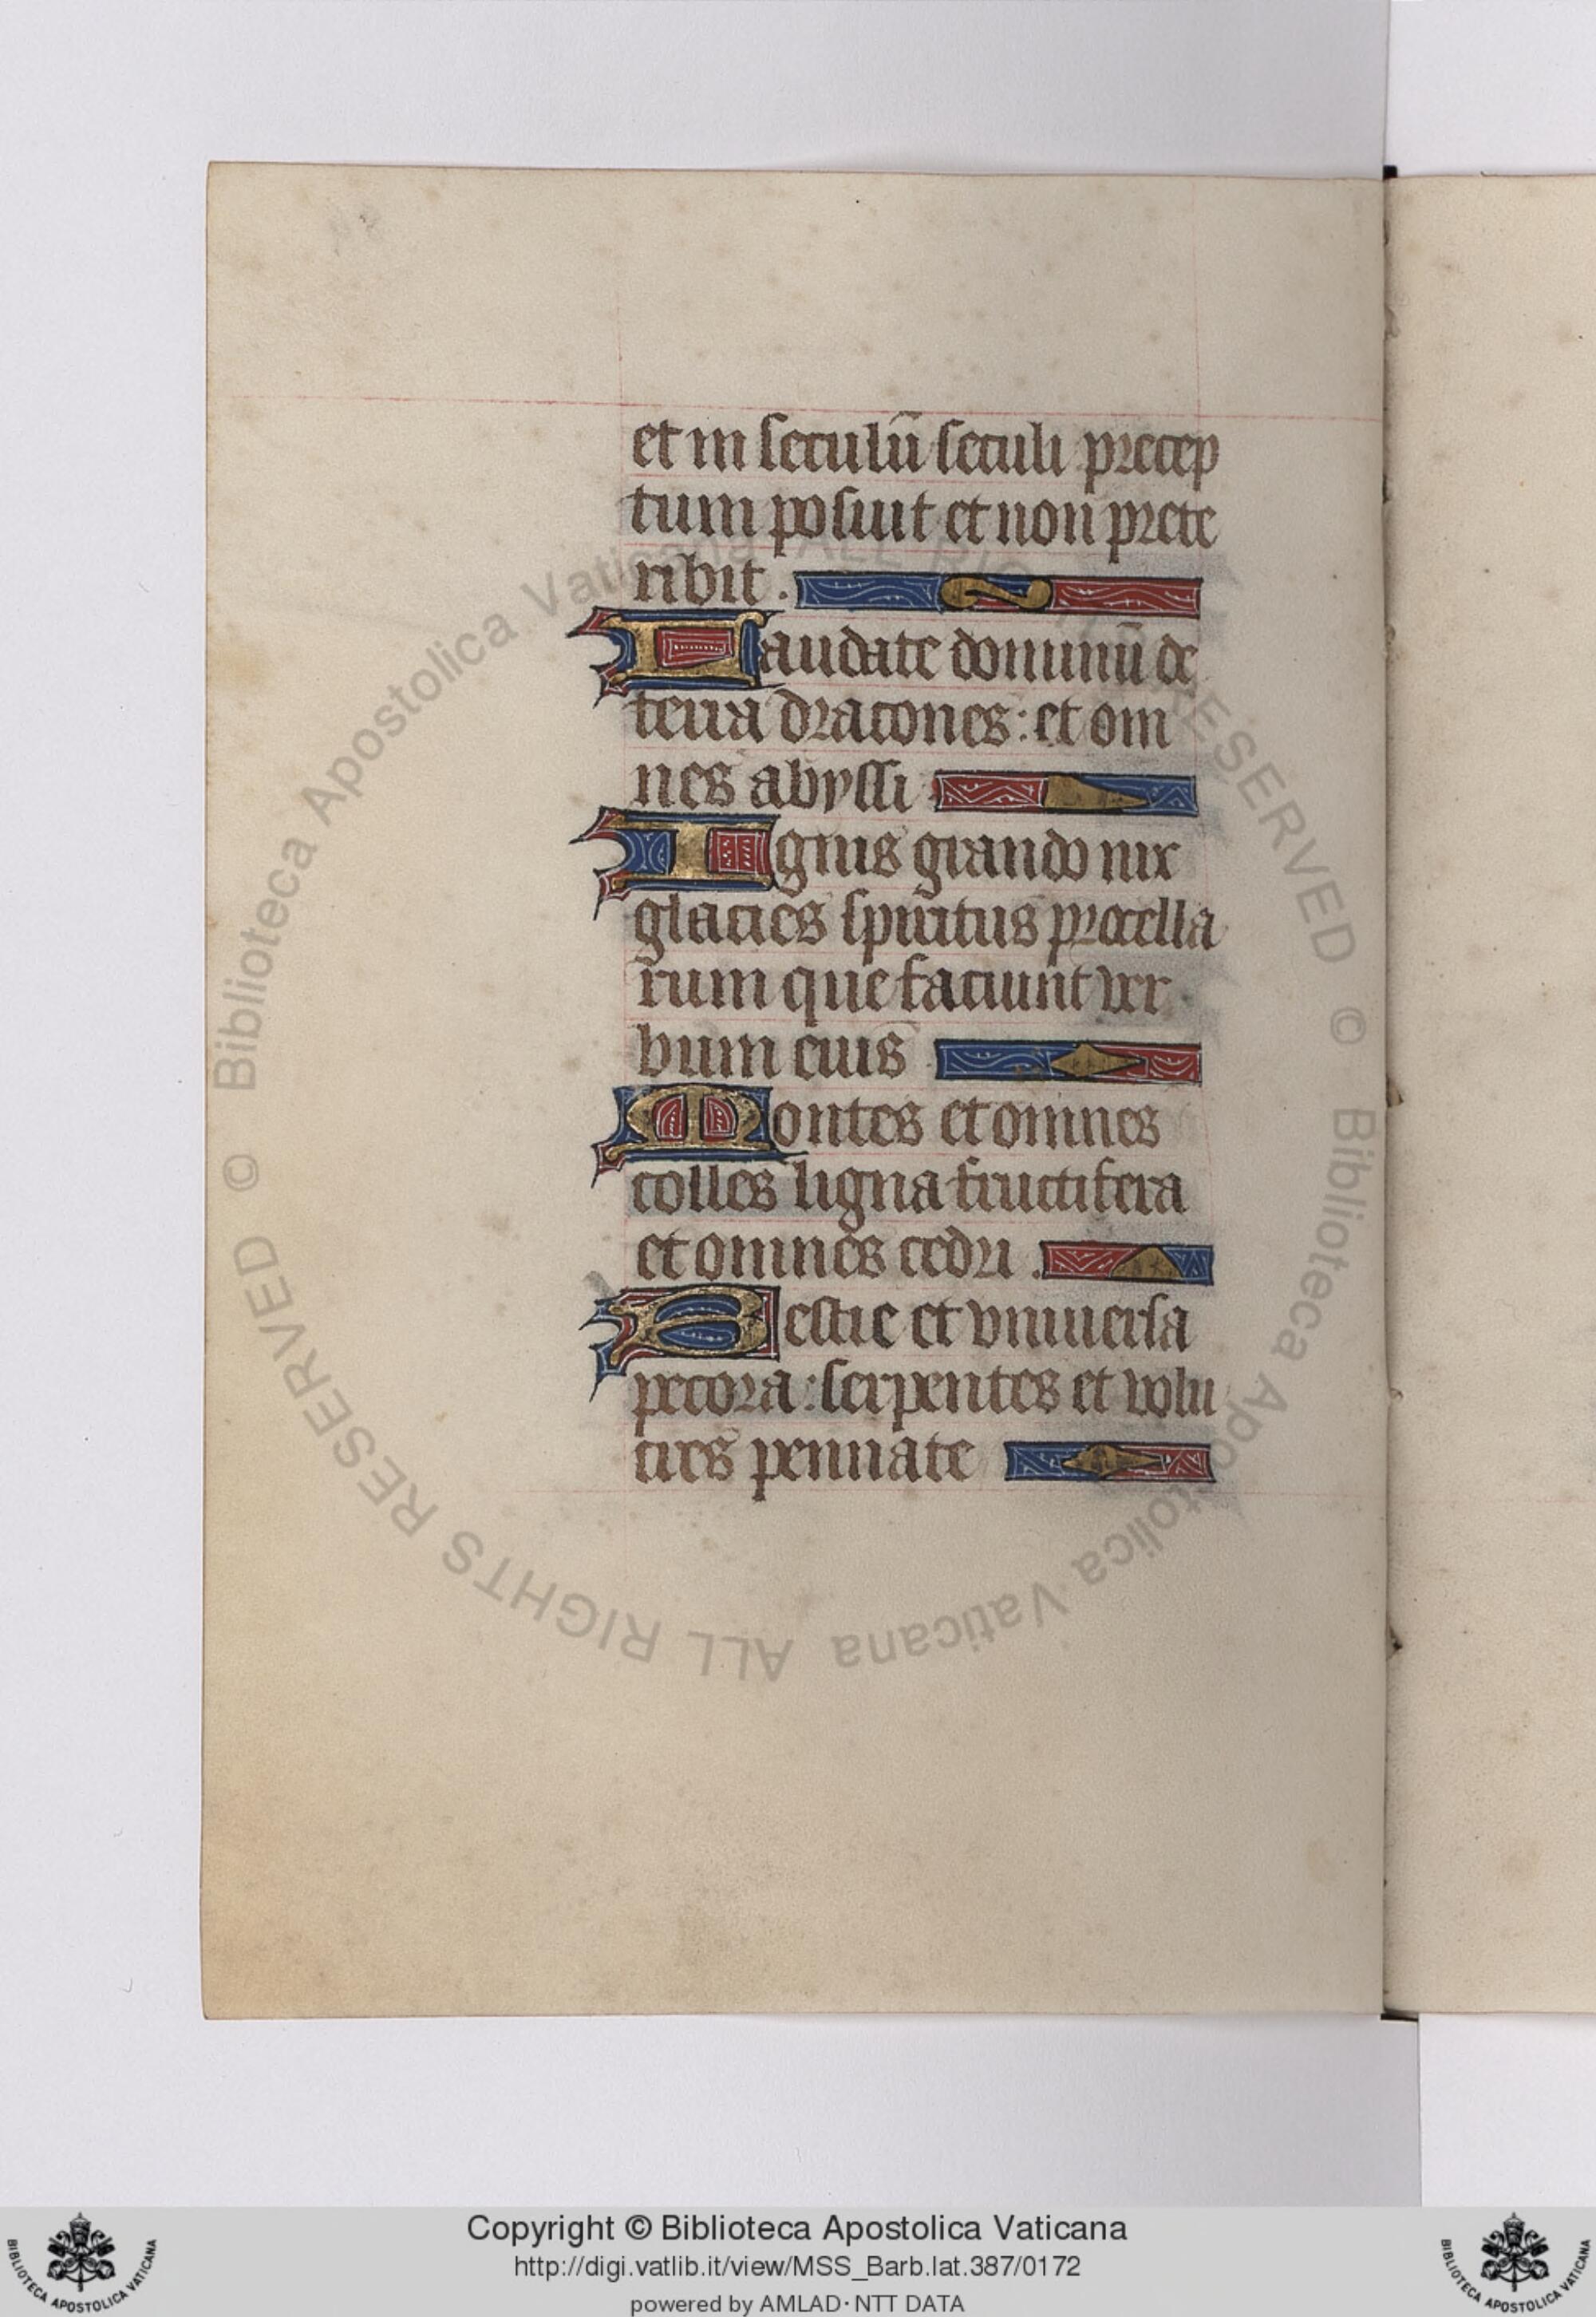 et in seculū seculi precep
tum posuit et non prete
ribit.
Laudate dominū de
terra dracones: et om
nes abyssi.
Ignis grando nix
glacies spiritus procella
rum que faciunt ver
bum eius
Montes et omnes
colles ligna fructifera
et omnes cedri.
Bestie et universa
pecora: serpentes et volu
cres pennate
© Biblioteca Apostolica Vaticana ALL RIGHTS RESERVED © Biblioteca Apostolica Vaticana ALL RIGHTS RESERVED
Copyright © Biblioteca Apostolica Vaticana
http://digi.vatlib.it/view/MSS_Barb.lat.387/0172
powered by AMLAD·NTT DATA
BIBLIOTECA APOSTOLICA VATICANA
BIBLIOTECA APOSTOLICA VATICANA